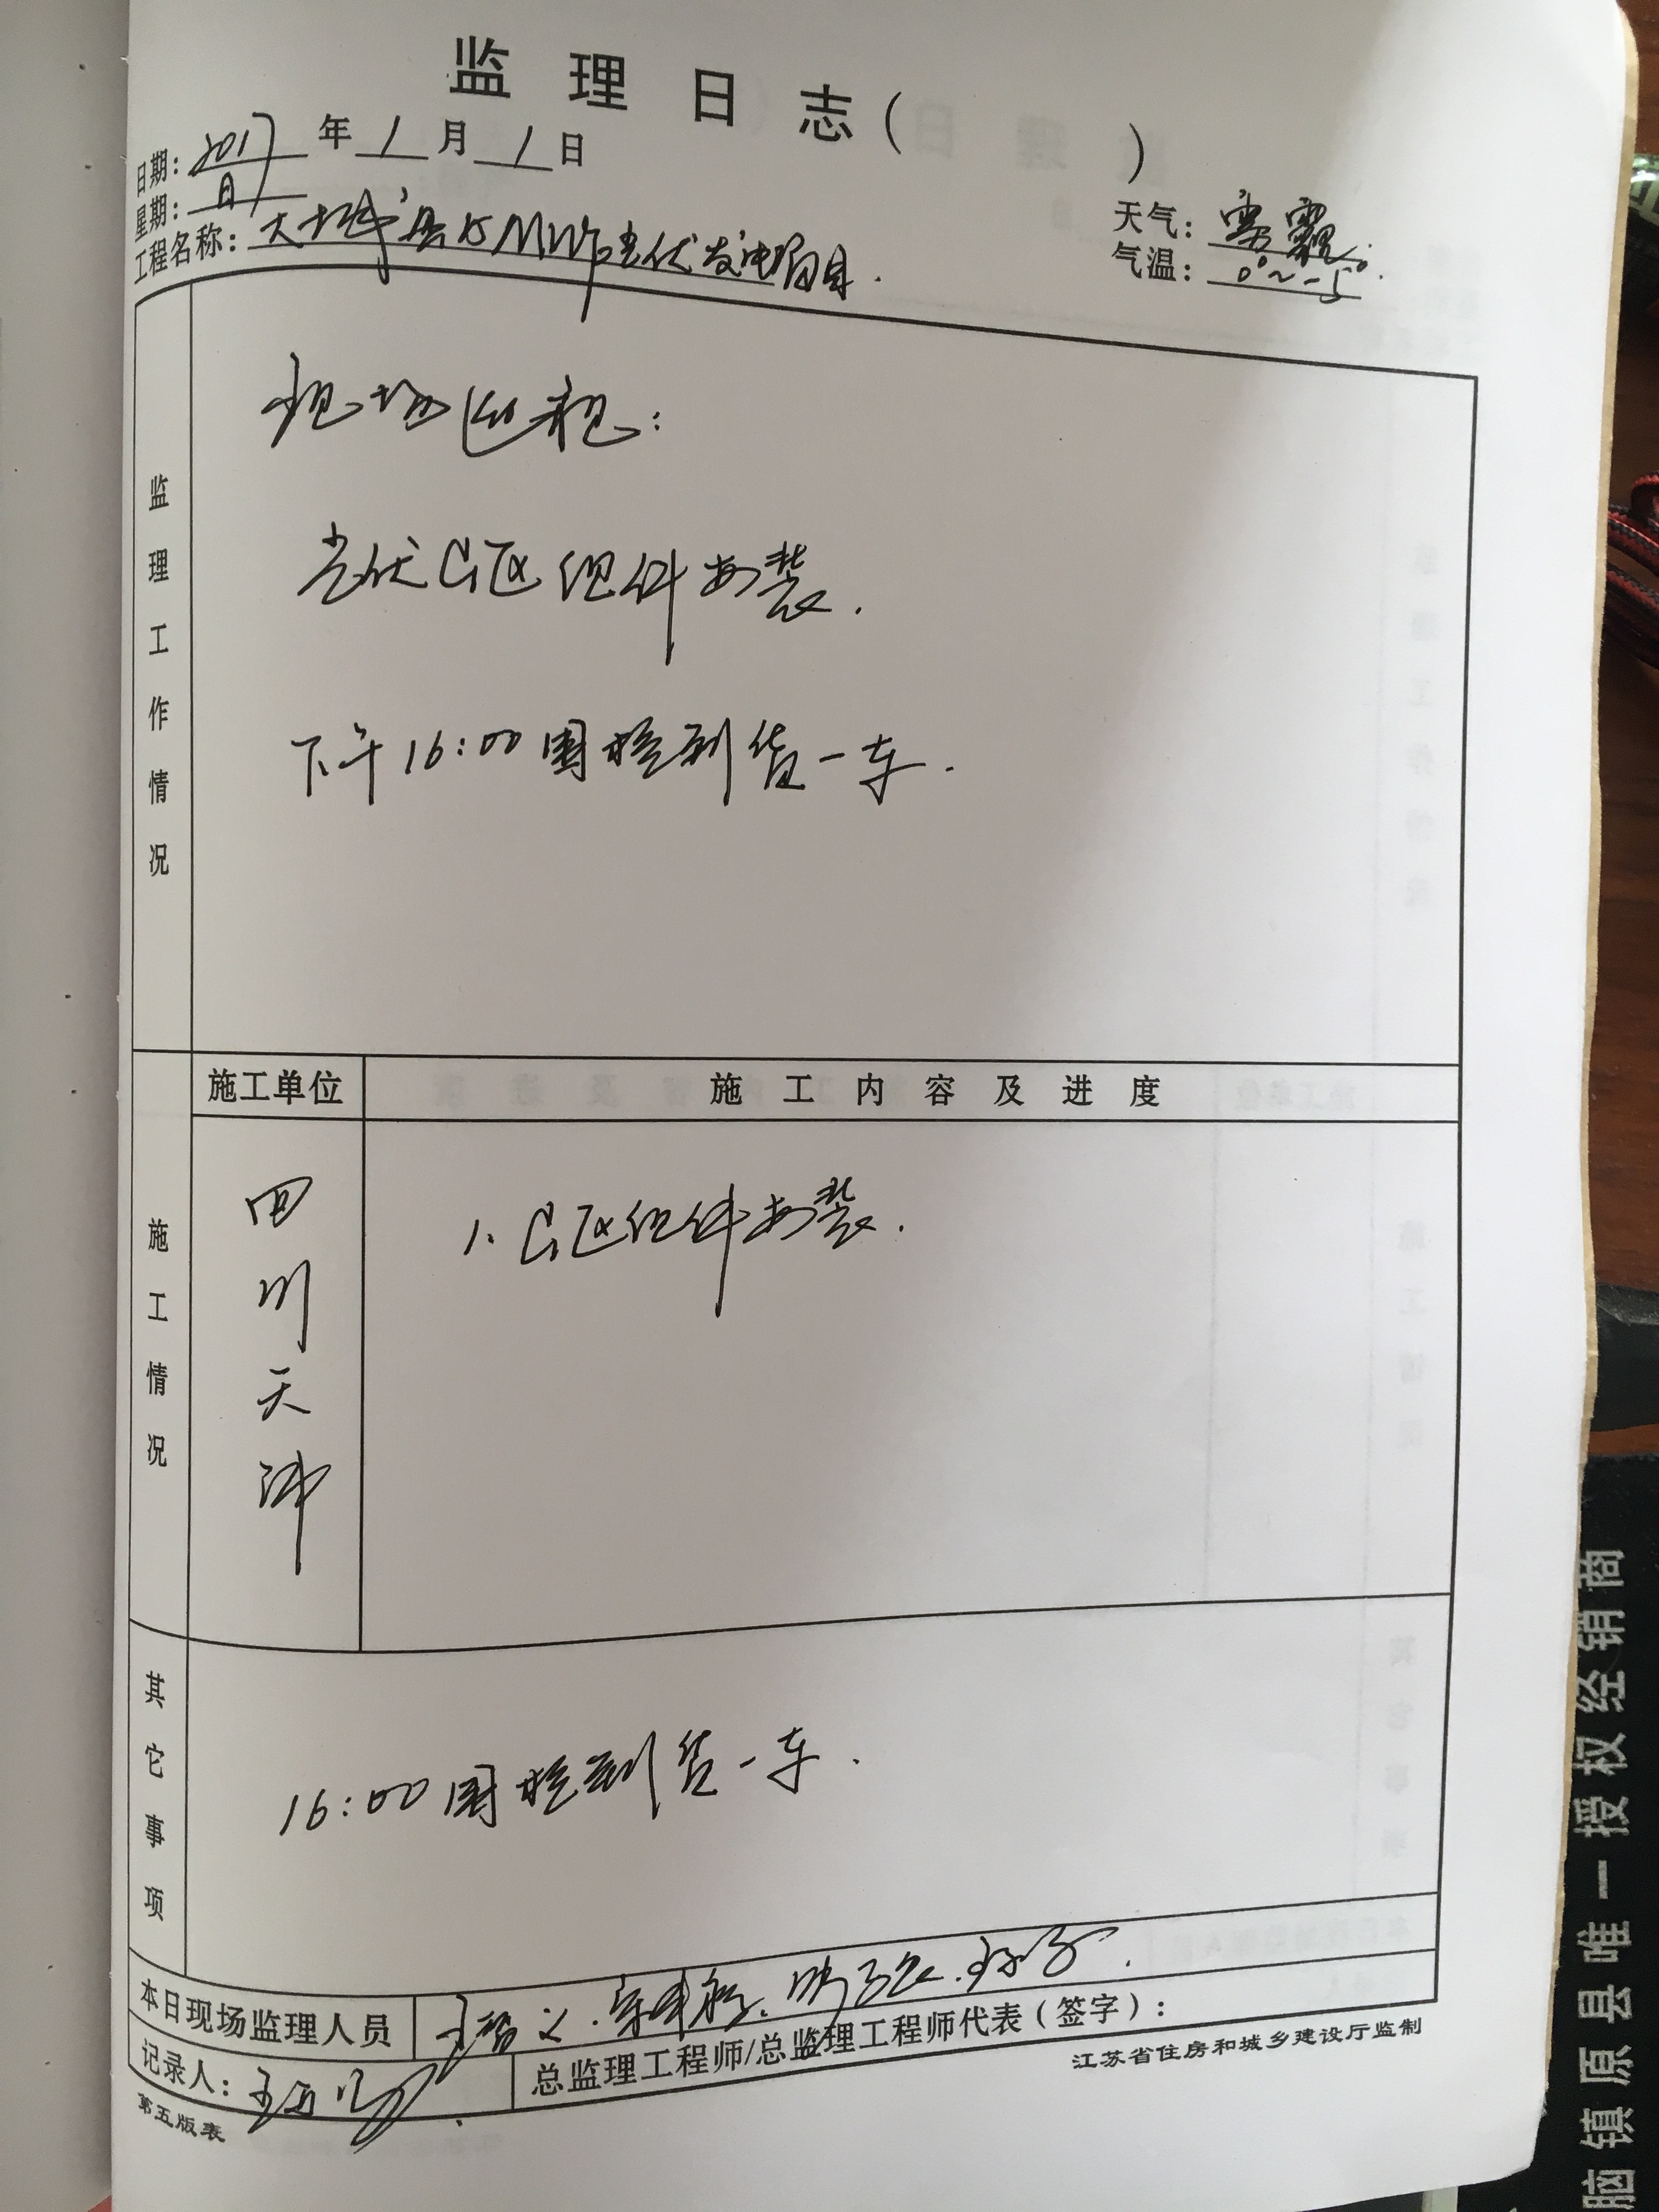 监理日志( )
日期: 2017 年 1 月 1 日
星期: 日
天气: 雾霾
工程名称: 大城县15MWp光伏发电项目.
气温: 0°~-5°
监理工作情况
现场巡视:
光伏G区组件安装.
下午16:00围栏到货一车.
施工单位
施工内容及进度
施工情况
四川天沛
1、G区组件安装.
其它事项
16:00围栏到货一车.
本日现场监理人员
记录人:
总监理工程师/总监理工程师代表(签字):
第五版表
江苏省住房和城乡建设厅监制
脑镇原县唯一授权经销商